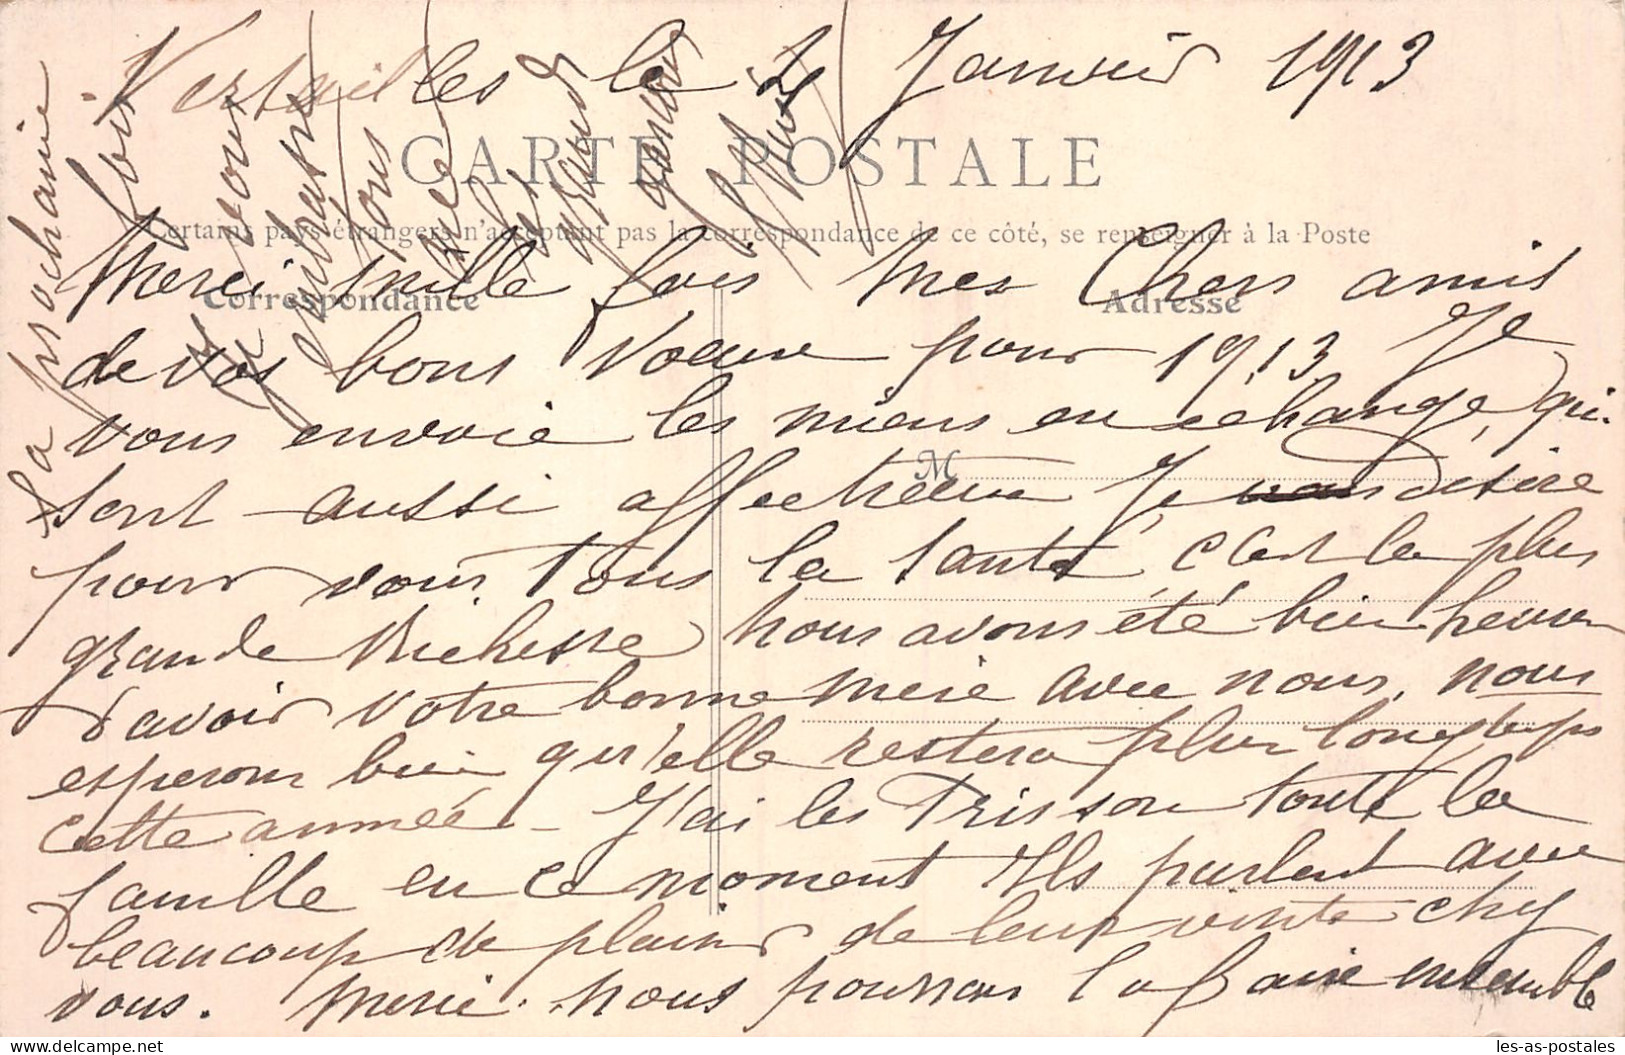 Versailles le 2 Janvier 1913
CARTE POSTALE
Certains pays étrangers n'acceptant pas la correspondance de ce côté, se renseigner à la Poste
Correspondance
Adresse
M
Merci mille fois Mes Chers amis
de vos bons Voeux pour 1913 Je
vous envoie les miens en echange, qui
sont aussi affectueux Je desire
pour vous Tous la Santé, c'est la plus
grande Richesse, nous avons été bien heureux
d'avoir votre bonne mère avec nous, nous
esperons bien qu'elle restera plus longtemps
cette année - J'ai les Trisson toute la
famille en ce moment Ils parlent avec
beaucoup de plaisir de leur visite chez
vous. Merci. nous pourrons la faire ensemble
La prochaine
fois
Je vous
embrasse
Tous
les
grands
Louis
les-as-postales
delcampe.net